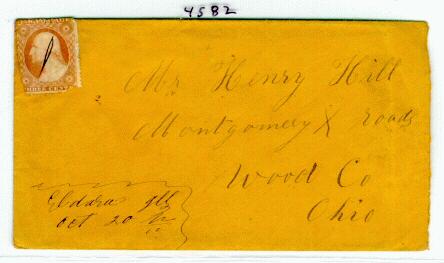 4582
THREE CENTS
Mr Henry Hill
Montgomery X roads
Wood Co
Ohio
Eldara Ill
Oct 20